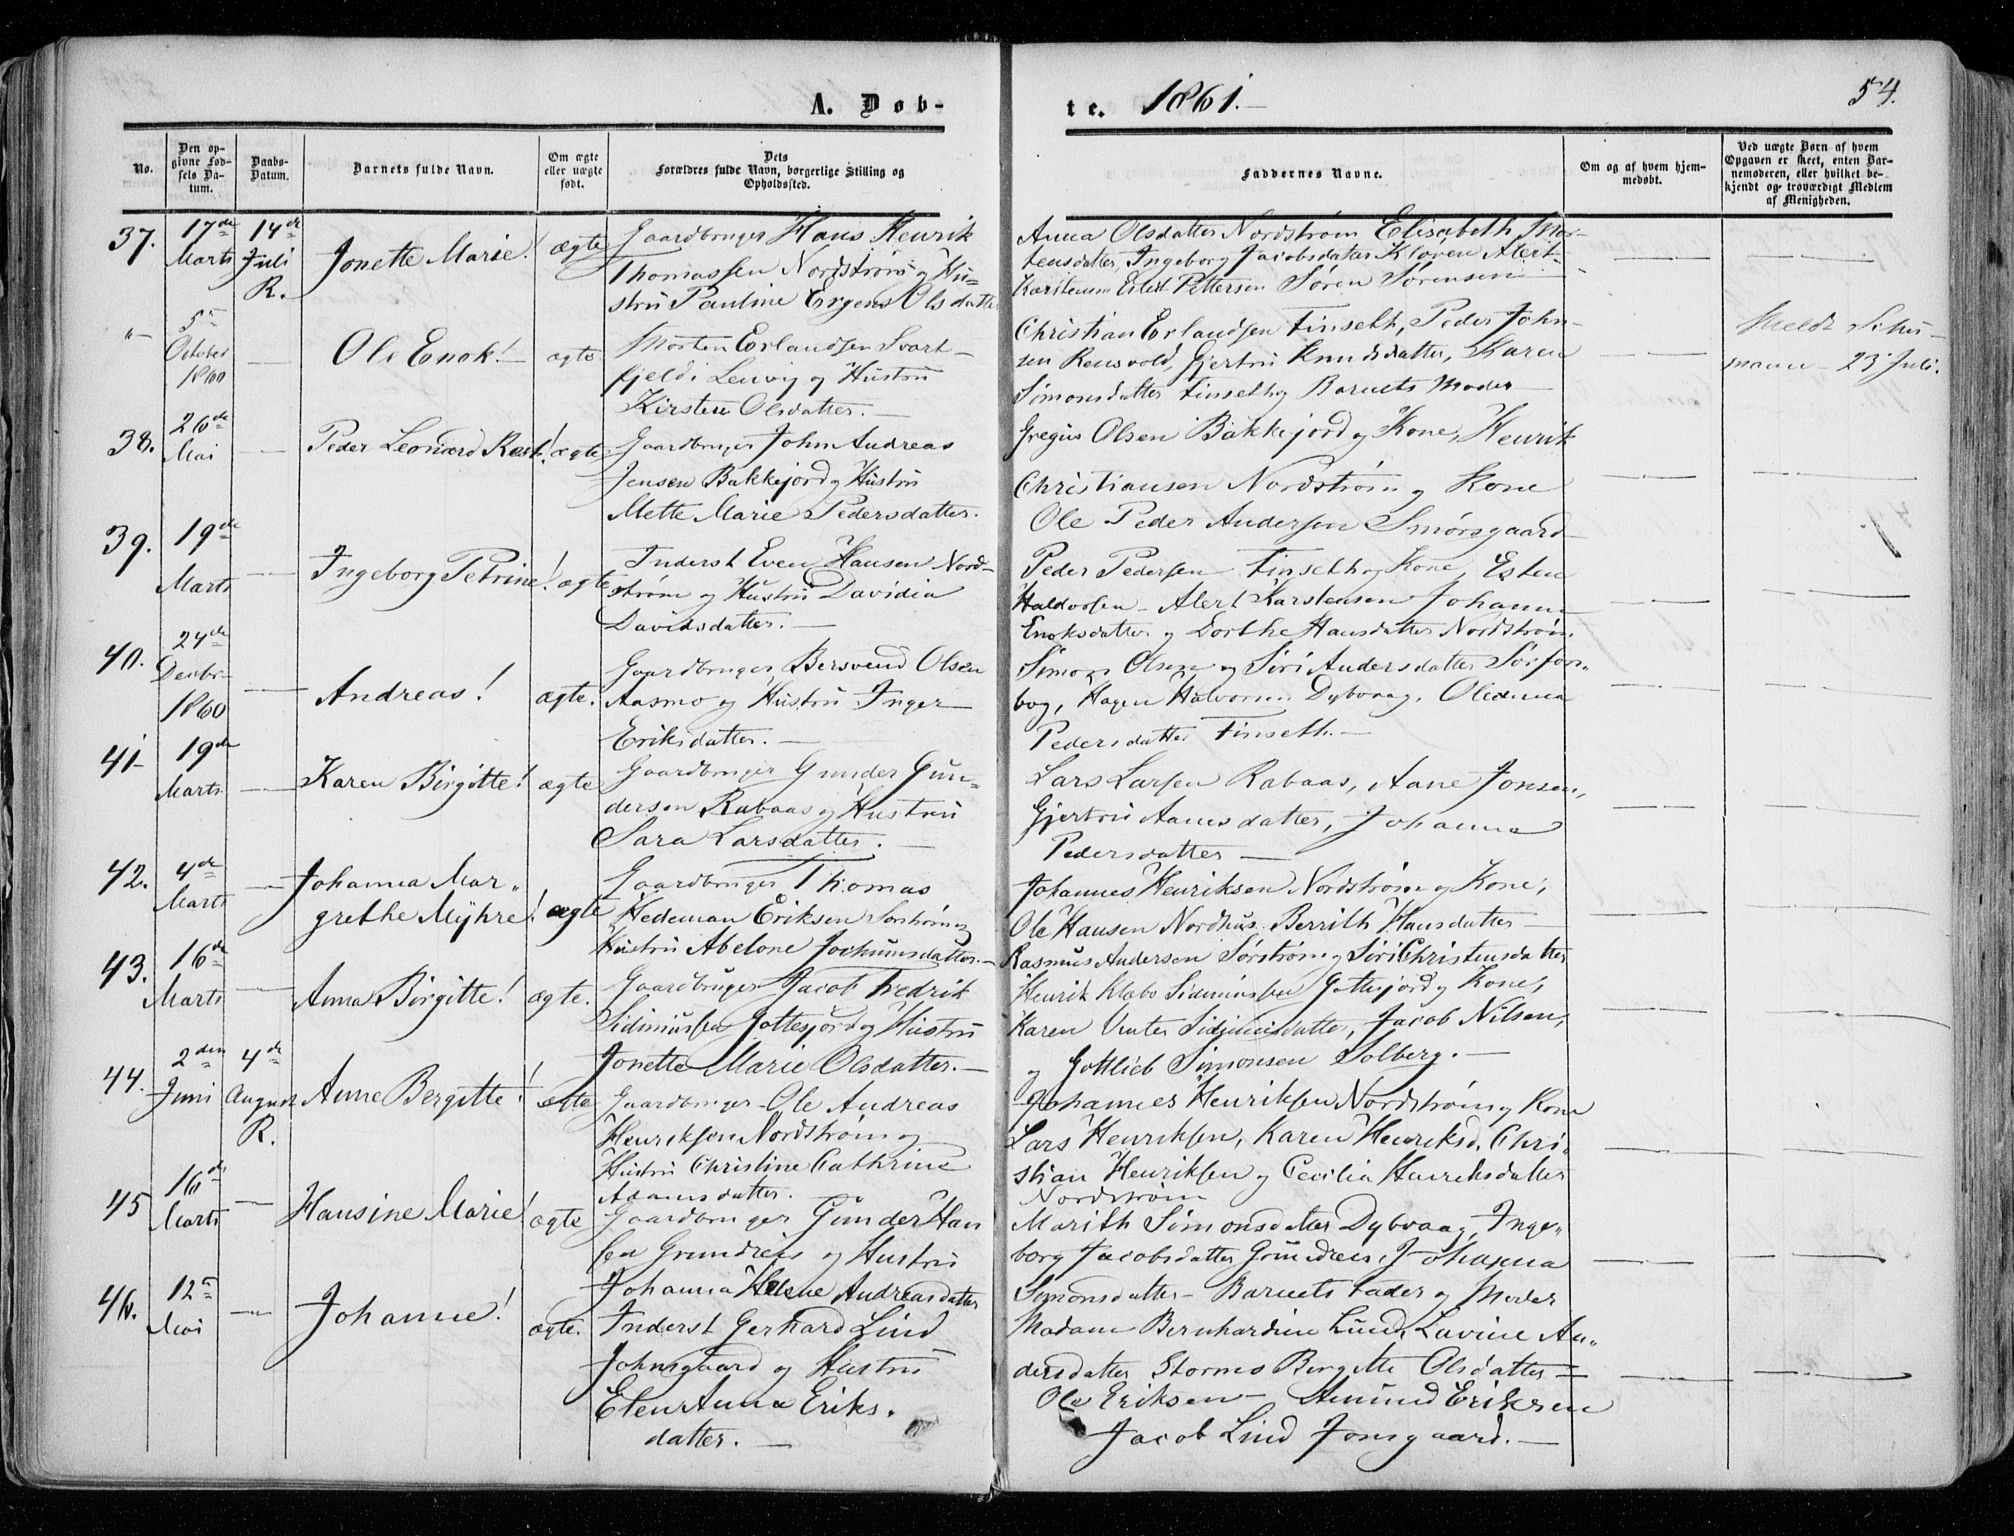 A. Døb-
te. 1861.
54.
No.
Den op-
givne Fød-
sels Da-
tum.
Daabs-
Datum.
Barnets fulde Navn.
Om ægte
eller uægte
født.
Dets
Forældres fulde Navn, borgerlige Stilling og
Opholdssted.
Faddernes Navne.
Om og af hvem hjem-
medøbt.
Ved uægte Børn af hvem
Opgaven er skeet, enten Bar-
nemoderen, eller hvilket be-
kjendt og troværdigt Medlem
af Menigheden.
37.
17de
Marts
14de
Juli
R.
Jonette Marie!
ægte
Gaardbruger Hans Henrik
Thomassen Nordstrøm og Hu-
stru Pauline Olsdatter
Anna Olsdatter Nordstrøm Elisabeth Mor-
tensdatter, Ingeborg Jacobsdatter Kløven Alert
Karstensen Pettersen Søren Sørensen
"
5te
October
1860
Ole Enok!
ægte
Morten Erlandsen Svart-
fjeld i Lenvig og Hustru
Kirsten Olsdatter.
Christian Erlandsen Finseth, Peder John-
sen Rensvold, Gjertru Knudsdatter, Karen
Simonsdatter Finseth og Barnets Moder
23 Juli.
38.
26de
Mai
Peder Leonard Rest!
ægte
Gaardbruger John Andreas
Jensen Bakkejord og Hustru
Mette Marie Pedersdatter.
Gregius Olsen Bakkejord og Kone, Henrik
Christiansen Nordstrøm og Kone
Ole Peder Andersen Smørsgaard
39.
19de
Marts
Ingeborg Petrine!
ægte
Inderst Even Hansen Nord-
strøm og Hustru Davidia
Davidsdatter.
Peder Pedersen Finseth og Kone, Esten
Haldorsen - Alert Karstensen Johanna
Enoksdatter og Dorthe Hansdatter Nordstrøm
40.
24de
Decbr
1860
Andreas!
ægte.
Gaardbruger Bersvend Olsen
Aasmo og Hustru Inger
Eriksdatter.
Simon Olsen og Siri Andersdatter Sørfors-
bog, Hagen Halvorsen Dybvaag, Oledina
Pedersdatter Finseth.
41
19de
Marts
Karen Birgitte!
ægte
Gaardbruger Gunder Gun-
dersen Rabaas og Hustru
Sara Larsdatter.
Lars Larsen Rabaas, Aane Jonsen,
Gjertru Aanesdatter, Johanna
Pedersdatter
42.
4de
Marts
Johanna Mar-
grethe Myhre!
ægte
Gaardbruger Thomas
Hedeman Eriksen Sørstrøm og
Hustru Abelone Jochumsdatter.
Johannes Henriksen Nordstrøm og Kone,
Ole Hansen Nordhus. Berrith Hansdatter
Rasmus Andersen Sørstrøm og Siri Christensdatter
43.
16de
Marts
Anna Birgitte!
ægte.
Gaardbruger Jacob Fredrik
Sidiniussen Gottesjord og Hustru
Jonette Marie Olsdatter.
Henrik Klæbo Sidiniussen Gottesjord og Kone,
Karen Sidiniusdatter, Jacob Nilsen,
og Gottlieb Simonsen Solberg.
44.
2den
Juni
4de
August
R.
Anne Bergitte!
ægte
Gaardbruger Ole Andreas
Henriksen Nordstrøm og
Hustru Christine Cathrine
Adamsdatter.
Johannes Henriksen Nordstrøm og Kone
Lars Henriksen, Karen Henriksd. Chri-
stian Henriksen og Cecilia Henriksdatter
Nordstrøm
45
16de
Marts
Hansine Marie!
ægte
Gaardbruger Gunder Han
sen Grundreis og Hustru
Johanna Helene Andreasdatter
Marith Simonsdatter Dybvaag, Inge-
borg Jacobsdatter Grundreis, Johanna
Simonsdatter - Barnets Fader og Moder
46.
12te
Mai
Johanne!
ægte.
Inderst Gerhard Lind
Johnsgaard og Hustru
Elen Anna Eriks-
datter.
Madam Bernhardine Lund, Lavine An-
dersdatter Stormo Birgitte Olsdatter
Ole Eriksen - Amund Eriksen
Jacob Lind Jonsgaard.